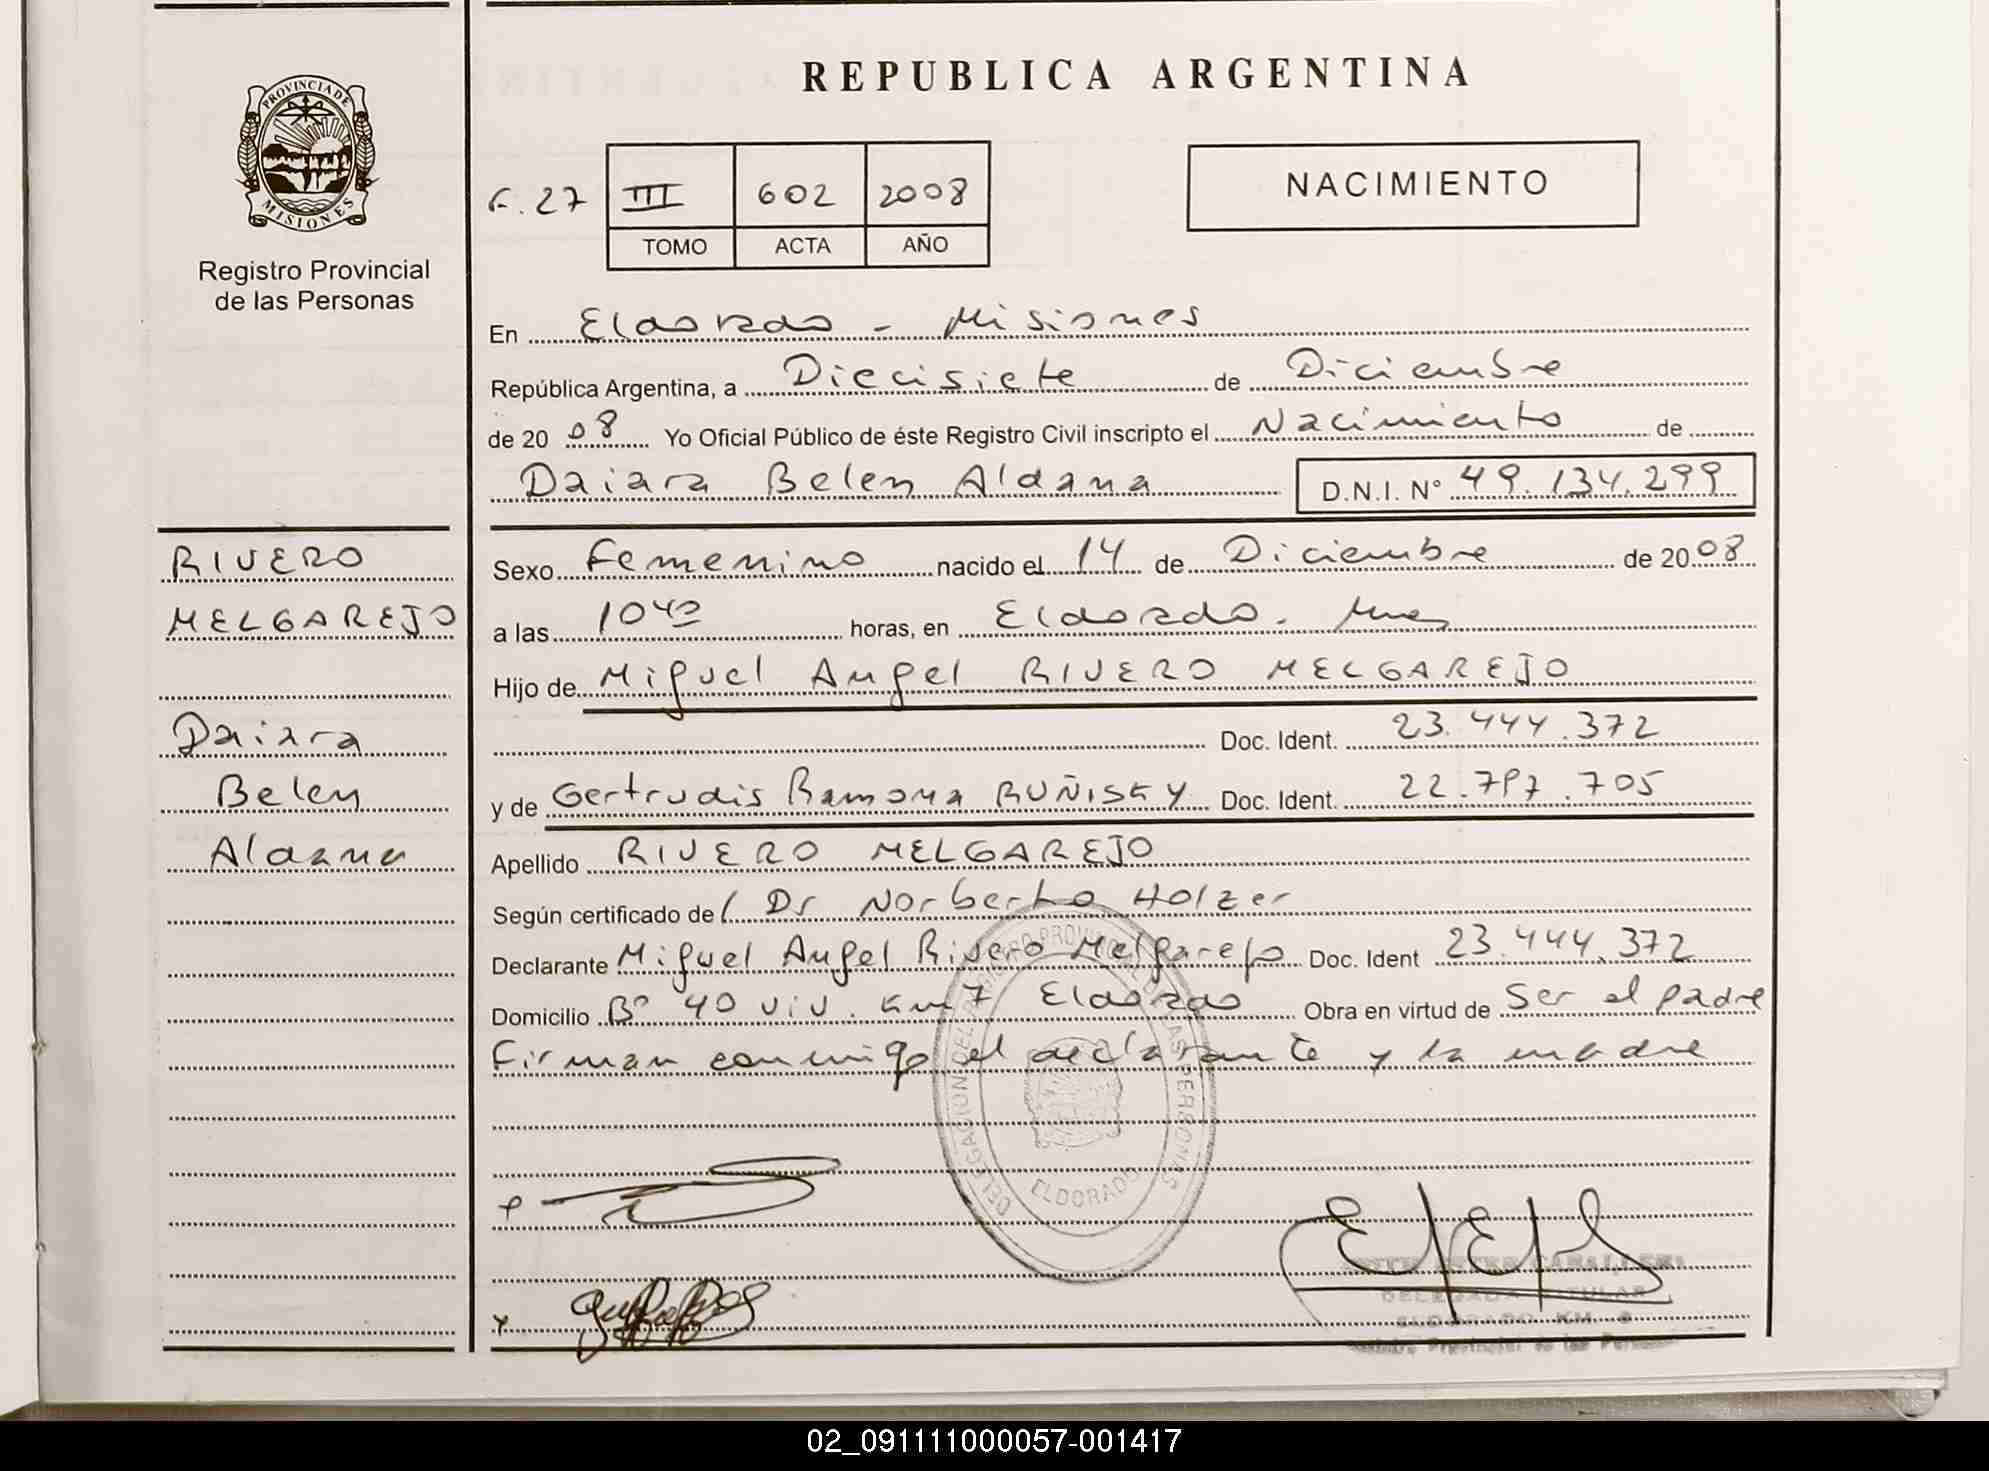 PROVINCIA DE
MISIONES
Registro Provincial
de las Personas
RIVERO
MELGAREJO
Daiara
Belen
Aldana
REPUBLICA ARGENTINA
F. 27 III 602 2008
TOMO ACTA AÑO
NACIMIENTO
En Eldorado - Misiones
República Argentina, a Diecisiete de Diciembre
de 20 08 Yo Oficial Público de éste Registro Civil inscripto el Nacimiento de
Daiara Belen Aldana D.N.I. N° 49.134.299
Sexo Femenino nacido el 14 de Diciembre de 2008
a las 10 40 horas, en Eldorado. Mnes
Hijo de Miguel Angel RIVERO MELGAREJO
Doc. Ident. 23.444.372
y de Gertrudis Ramona RUÑISKY Doc. Ident. 22.797.705
Apellido RIVERO MELGAREJO
Según certificado de Dr Norberto Holzer
Declarante Miguel Angel Rivero Melgarejo Doc. Ident 23.444.372
Domicilio B° 40 viv. Km 7 Eldorado Obra en virtud de ser el padre
Firman conmigo el declarante y la madre
DELEGACION DEL REGISTRO PROVINCIAL DE LAS PERSONAS
ELDORADO
P
y
DELEGADA TITULAR
ELDORADO KM.
Registro Provincial de las Personas
02_091111000057-001417